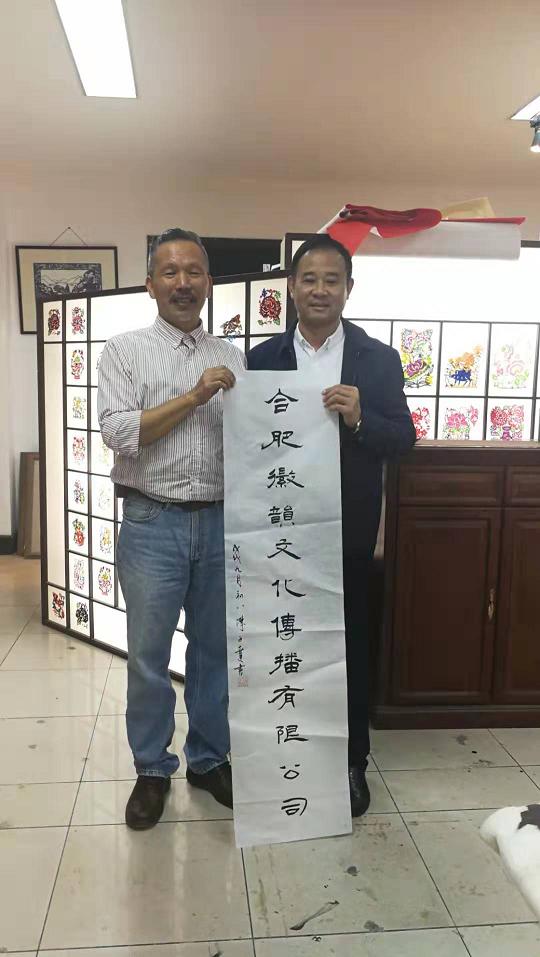 合肥徽韻文化傳播有限公司
戊戌九月初八陳